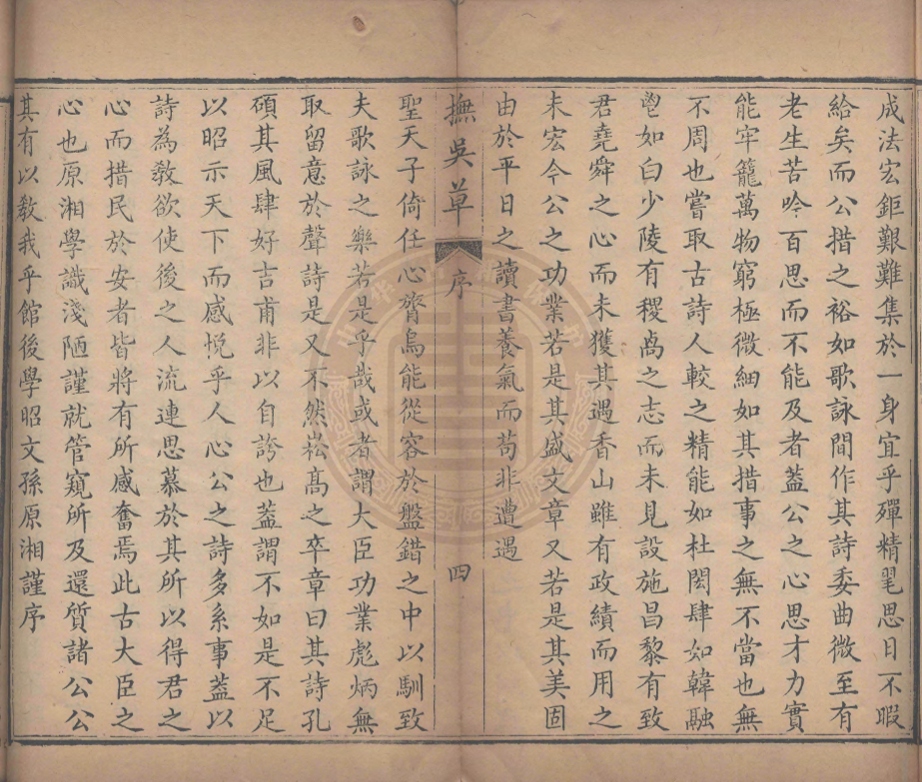 成法宏鉅艱難集於一身宜乎殫精毣思日不暇
給矣而公措之裕如歌詠間作其詩委曲微至有
老生苦吟百思而不能及者蓋公之心思才力實
能牢籠萬物窮極微細如其措事之無不當也無
不周也嘗取古詩人較之精能如杜閎肆如韓融
鬯如白少陵有稷卨之志而未見設施昌黎有致
君堯舜之心而未獲其遇香山雖有政績而用之
未宏今公之功業若是其盛文章又若是其美固
由於平日之讀書養氣而苟非遭遇
撫吳草
序
四
聖天子倚任心膂烏能從容於盤錯之中以馴致
夫歌詠之樂若是乎哉或者謂大臣功業彪炳無
取留意於聲詩是又不然崧高之卒章曰其詩孔
碩其風肆好吉甫非以自誇也蓋謂不如是不足
以昭示天下而感悅乎人心公之詩多系事蓋以
詩為敎欲使後之人流連思慕於其所以得君之
心而措民於安者皆將有所感奮焉此古大臣之
心也原湘學識淺陋謹就管窺所及還質諸公公
其有以敎我乎館後學昭文孫原湘謹序